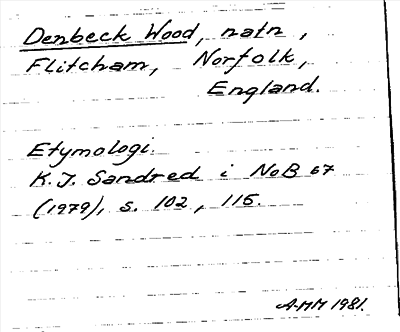 Denbeck Wood, natn,
Flitcham, Norfolk,
England.
Etymologi.
K.I. Sandred i NoB 67
(1979), s. 102, 115.
A-MM 1981.